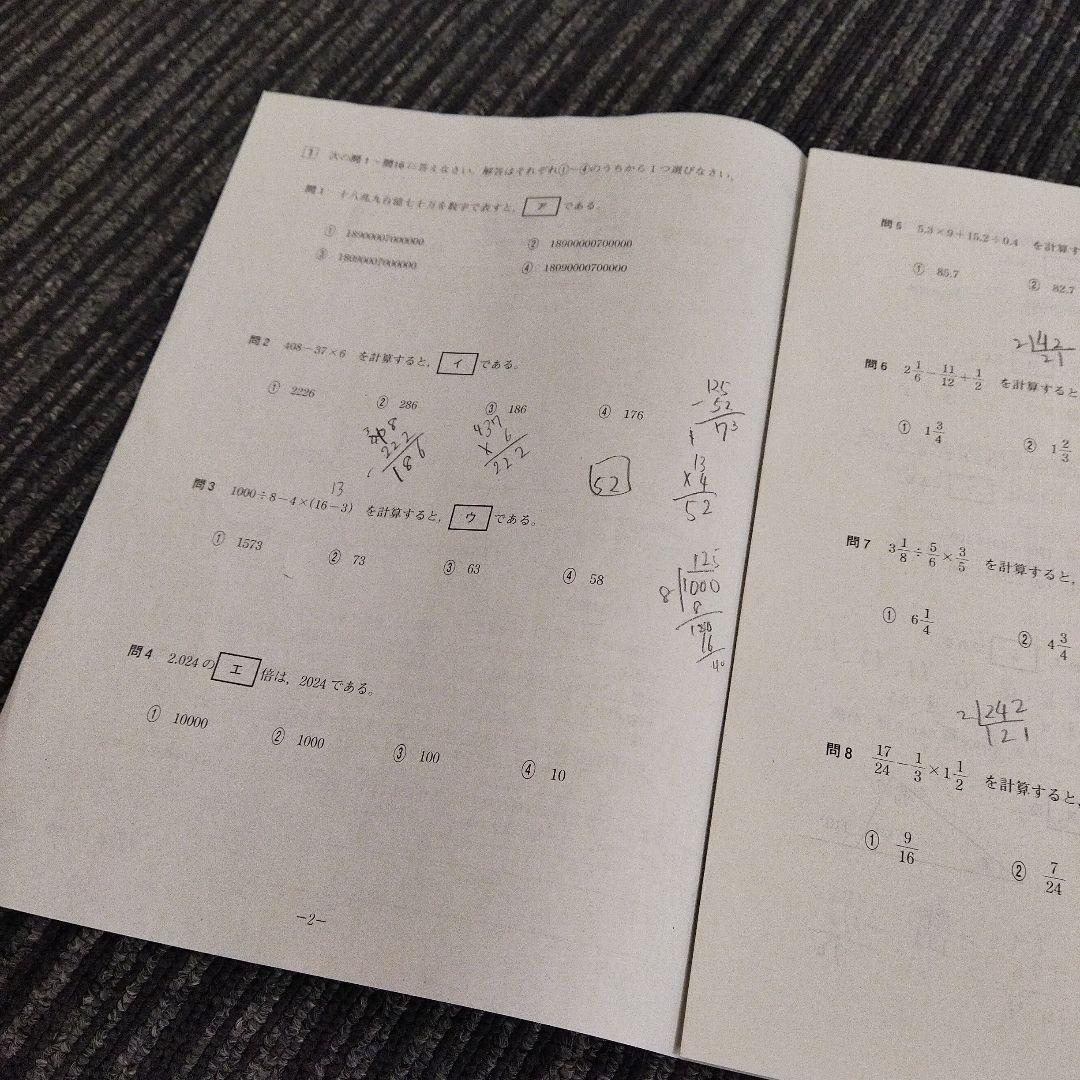 1 次の問1~問16に答えなさい。解答はそれぞれ①~④のうちから1つ選びなさい。
問1 十八兆九百億七十万を数字で表すと, ア である。
① 18900007000000
② 18900000700000
③ 18090007000000
④ 18090000700000
問2 408-37×6 を計算すると, イ である。
① 2226
② 286
③ 186
④ 176
222
186
37
× 6
222
125
- 52
73
13
× 4
52
52
13
問3 1000÷8-4×(16-3) を計算すると, ウ である。
① 1573
② 73
③ 63
④ 58
125
8 1000
8
16
40
問4 2.024の エ 倍は, 2024である。
① 10000
② 1000
③ 100
④ 10
-2-
問5 5.3×9+15.2÷0.4 を計算す
① 85.7
② 82.7
2 42
21
問6 2 1/6 - 11/12 + 1/2 を計算すると
① 1 3/4
② 1 2/3
問7 3 1/8 ÷ 5/6 × 3/5 を計算すると,
① 6 1/4
② 4 3/4
2 242
121
問8 17/24 - 1/3 × 1 1/2 を計算すると,
① 9/16
② 7/24